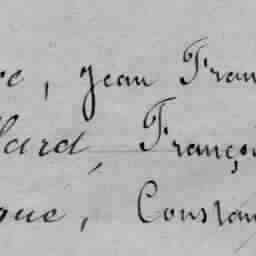 re, Jean Fran
lard, Franço
que, Constan